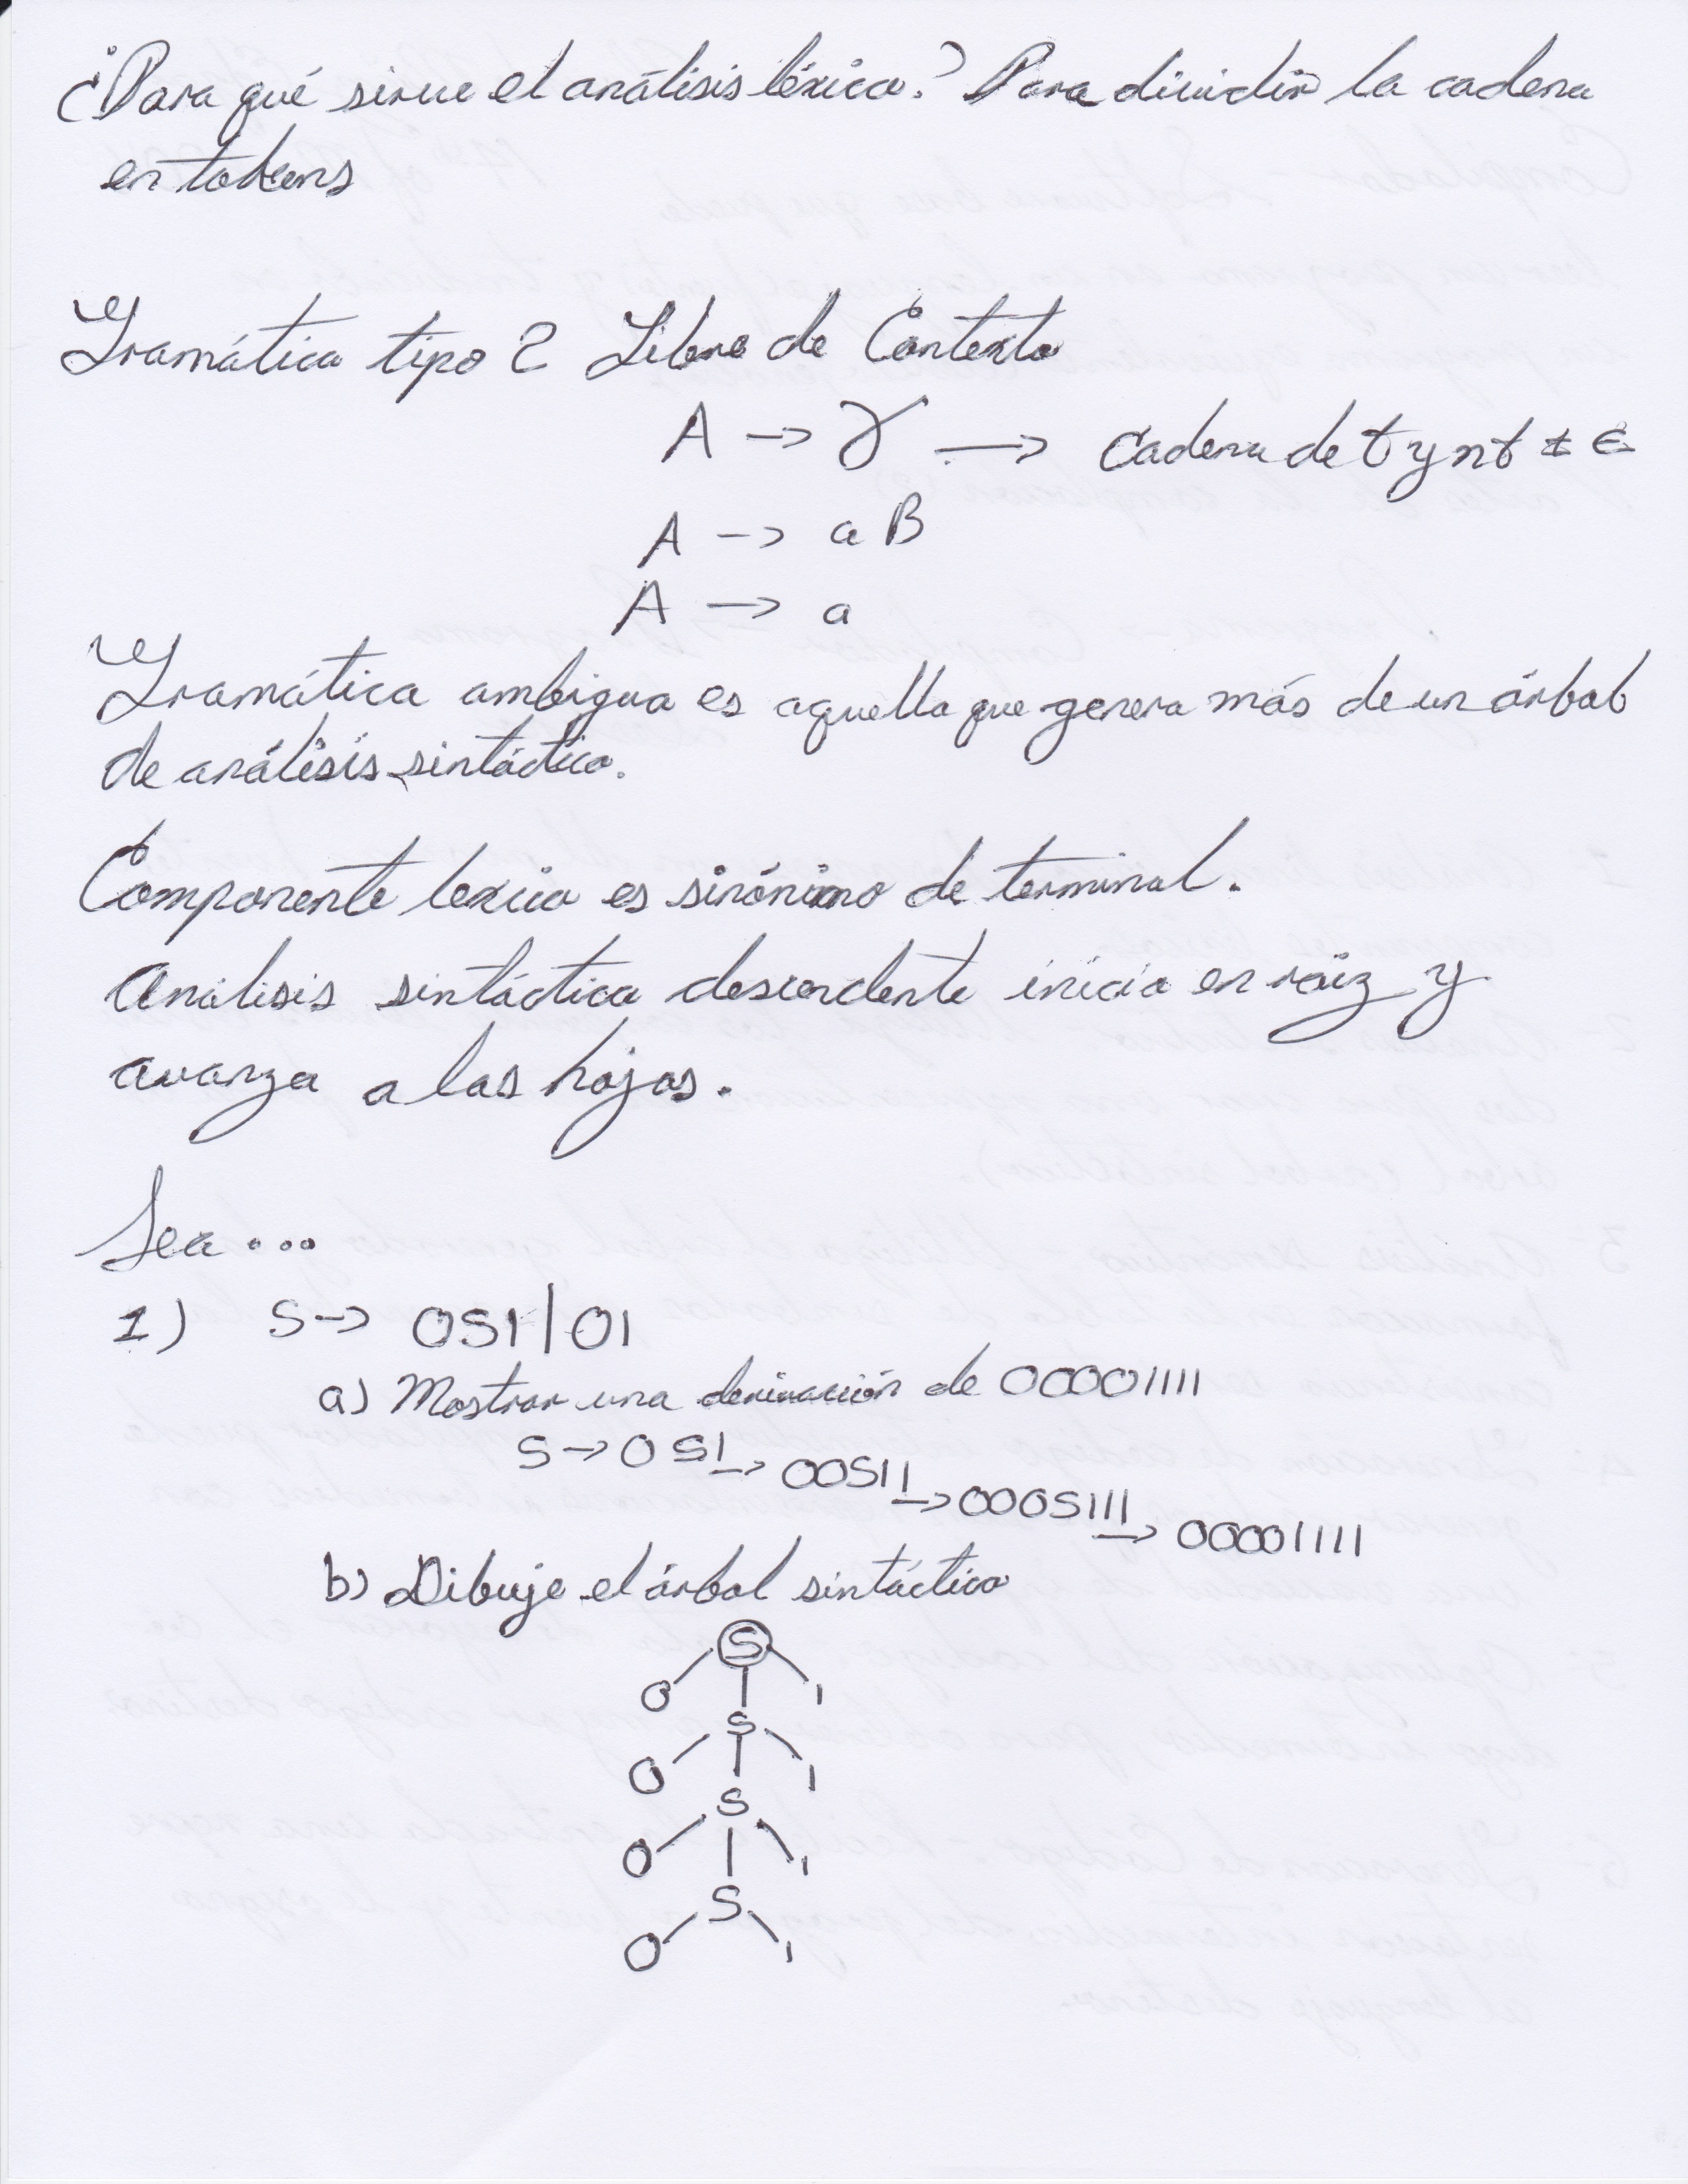 ¿Para qué sirve el análisis léxico? Para dividir la cadena
en tokens
Gramática tipo 2 Libre de Contexto
A → γ → Cadena de t y nt ± ε
A → aB
A → a
Gramática ambigua es aquella que genera más de un árbol
de análisis sintáctico.
Componente lexico es sinónimo de terminal.
Análisis sintáctico descendente inicia en raíz y
avanza a las hojas.
Sea...
1) S → 0S1|01
a) Mostrar una derivación de 00001111
S → 0S1 → 00S11 → 000S111 → 00001111
b) Dibuje el árbol sintáctico
S
0 1
S
0 1
S
0 1
S
0 1